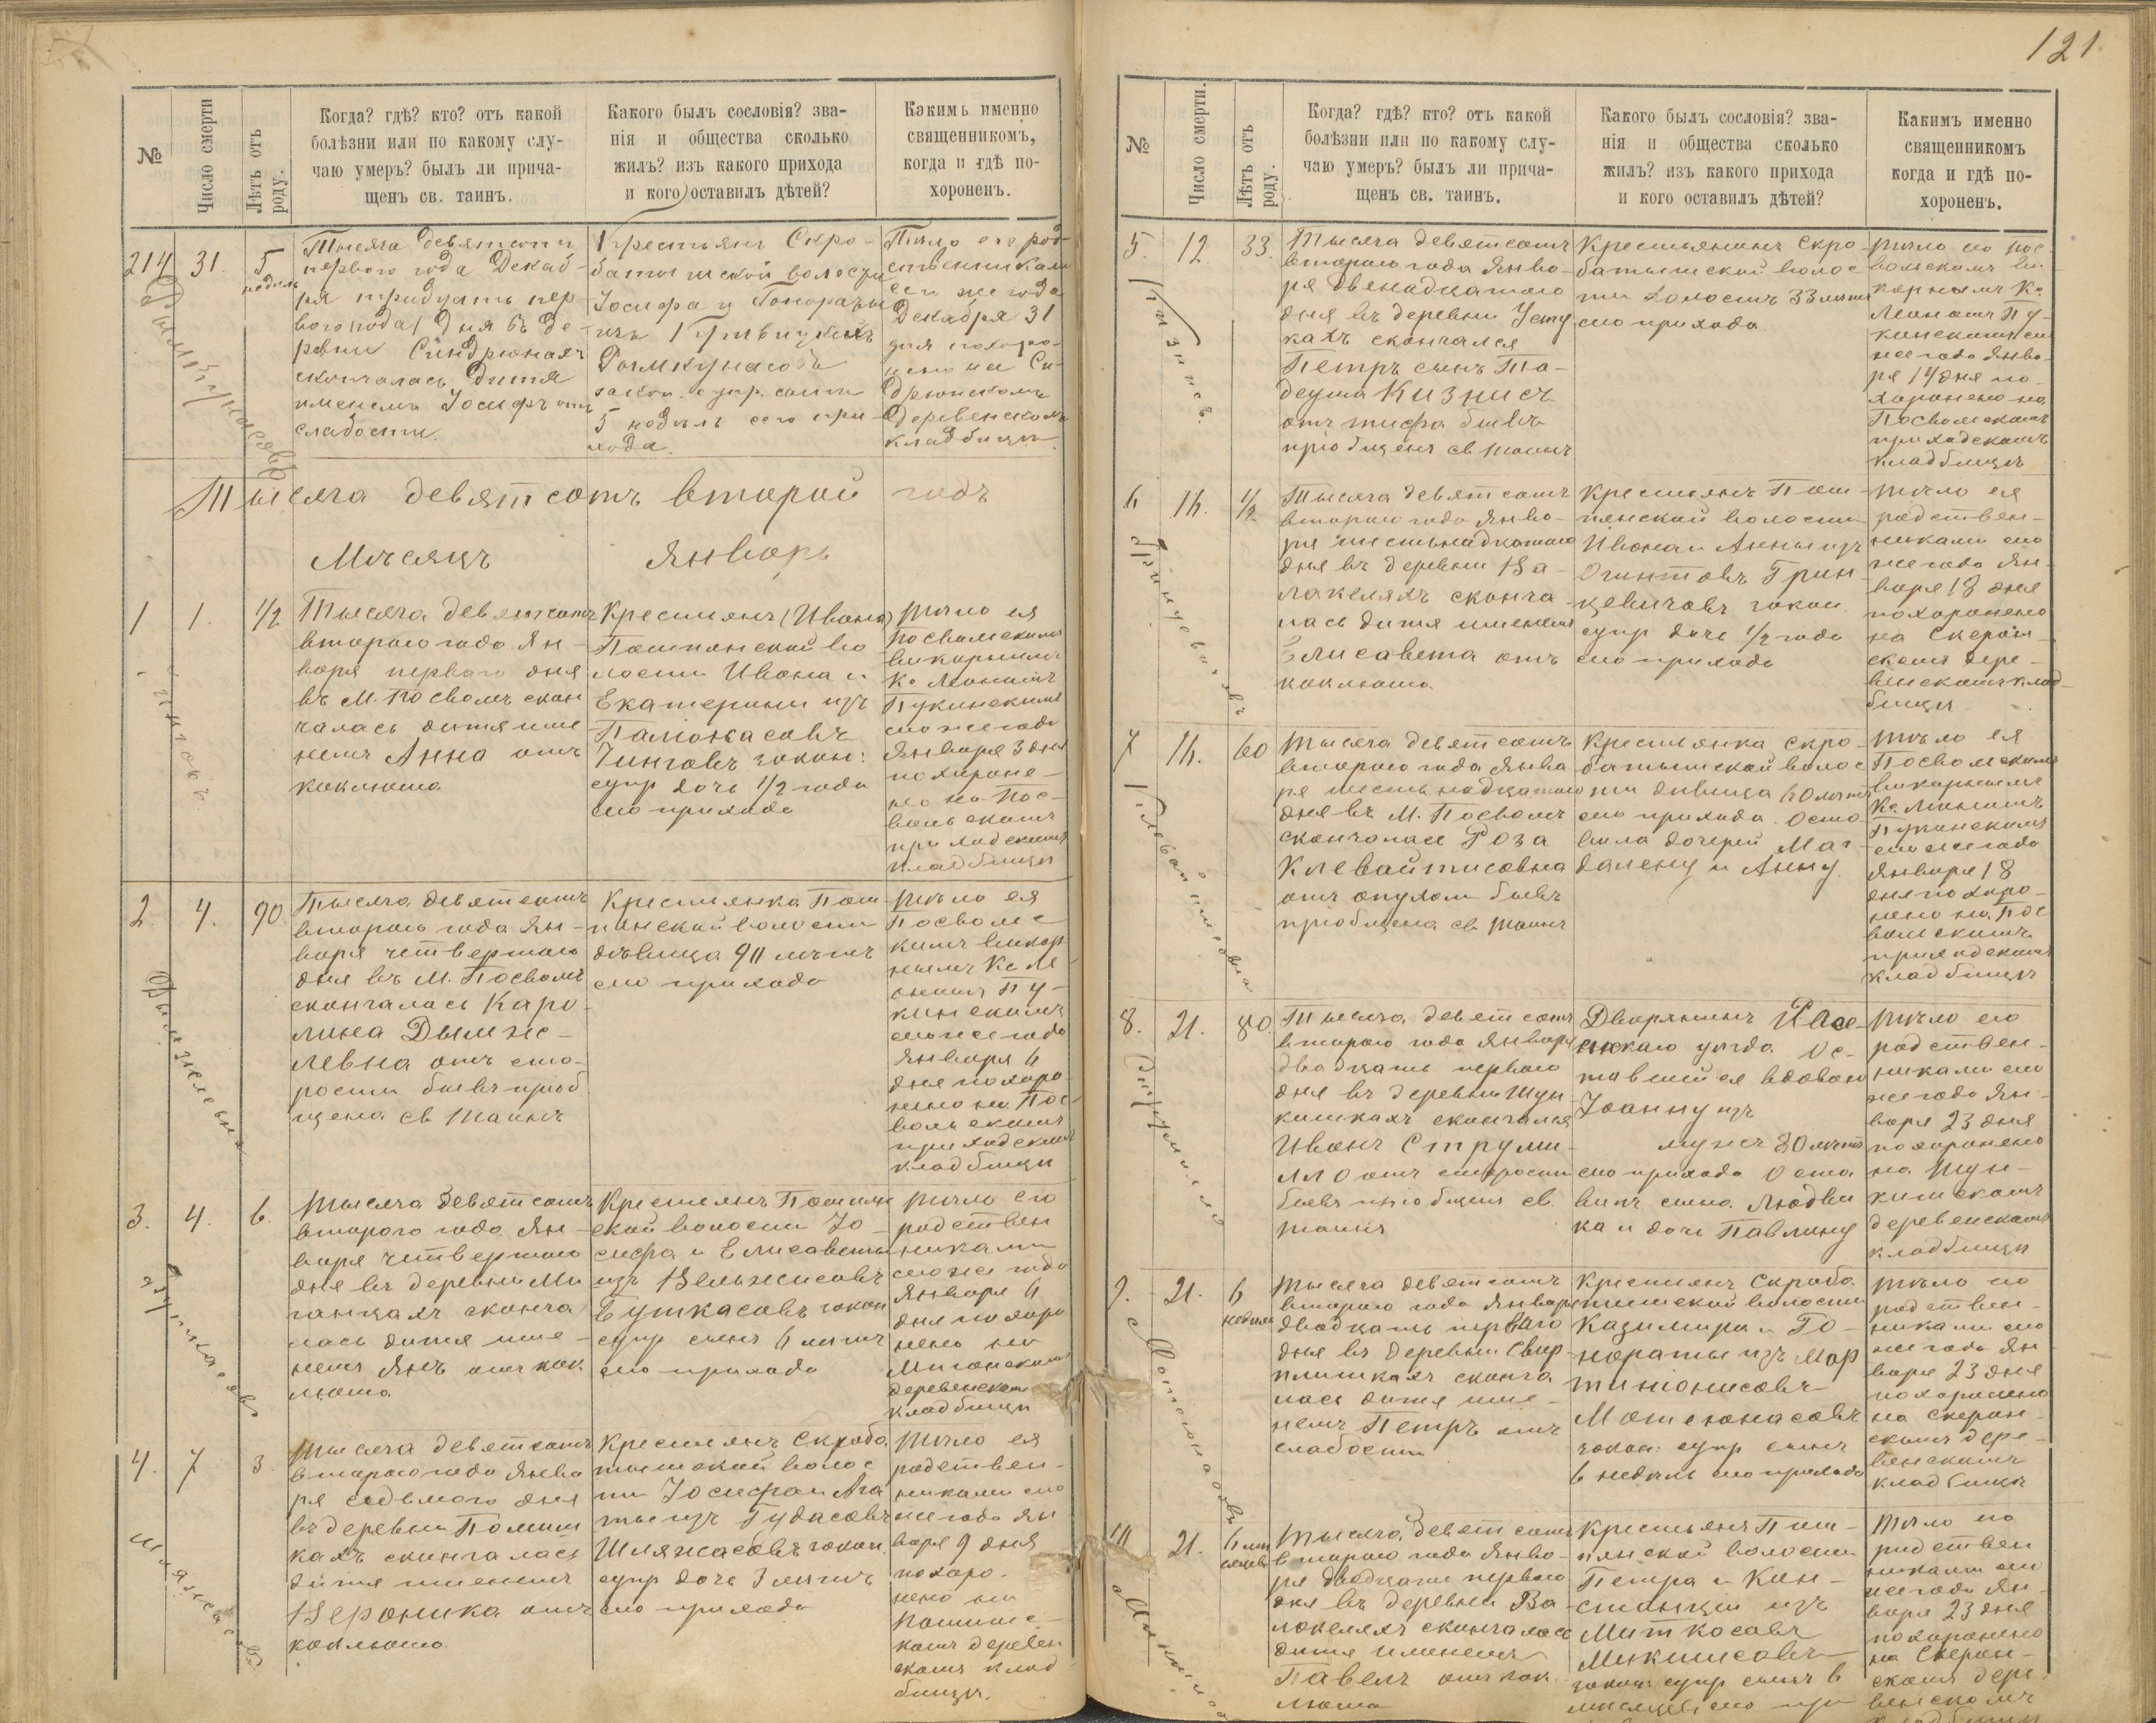 121
№
Число смерти
Лѣтъ отъ роду.
Когда? гдѣ? кто? отъ какой
болѣзни или по какому слу-
чаю умеръ? былъ ли прича-
щенъ св. таинъ.
Какого былъ сословія? зва-
нія и общества сколько
жилъ? изъ какого прихода
и кого оставилъ дѣтей?
Какимъ именно
священникомъ,
когда и гдѣ по-
хороненъ.
214
31.
5
недель
Тысяча девятсотъ
первого года Декаб-
ря тридцать пер-
вого года дня въ де-
ревни Синдрюнахъ
скончалась дитя
именемъ Іосифъ отъ
слабости.
Крестьянъ Скро-
батишской волости
Іосифа и Гонораты
изъ
Ромкунасовъ
закон. супр. сынъ
5 недель сего при-
хода.
Тѣло его род-
ственниками
сего же года
Декабря 31
дня похоро-
нено на Си-
дрюнскомъ
деревенскомъ
кладбищи
Тысяча девятсотъ второй годъ
Мѣсяцъ Январь
1
1.
1/2
Тысяча девятсотъ
второго года Ян-
варя первого дня
въ М. Посволь скон
чалась дитя име
немъ Анна отъ
коклюша
Крестьянъ (Ивана)
Помпянской во
лости Ивана и
Екатерины изъ
Паліонасовъ
Чинговъ закон:
супр дочь 1/2 года
сего прихода
тѣло ея
Посвольскимъ
викарнымъ
Кс Леономъ
Пукинскимъ
сего же года
Января 3 дня
похороне-
но на Пос-
вольскомъ
приходскомъ
кладбищи
2.
4.
90
Тысяча девятсотъ
второго года Ян-
варя четвертого
дня въ М. Посволь
скончалась Каро
лина Дымже-
левна отъ ста-
рости бывъ пріоб
щена св Таинъ
Крестьянка Пом
пянской волости
дѣвица 90 лѣтъ
сего прихода
тѣло ея
Посвольс
кимъ викар
нымъ Кс Ле
ономъ Пу-
кинскимъ
сего же года
Января 6
дня похоро
нено на Пос
вольскомъ
приходскомъ
кладбищи
3.
4.
6.
Тысяча девятсотъ
второго года Ян-
варя четвертого
дня въ деревни Ми
ганцахъ сконча
лась дитя име-
немъ Янъ отъ кок
люша
Крестьянъ Помпян
ской волости Іо-
сифа и Елисаветы
изъ Вельжисовъ
Буткасовъ закон
супр сынъ 6 лѣтъ
сего прихода
тѣло его
родствен
никами
сего же года
Января 6
дня похоро
нено на
Миганскомъ
деревенскомъ
кладбищи
4.
7
3.
Тысяча девятсотъ
второго года Янва
ря седьмого дня
въ деревни Помиш
кахъ скончалась
дитя именемъ
Вероника отъ
коклюша.
Крестьянъ Скроба
тишской волос
ти Іосифа и Ага
ты изъ Гудасовъ
Шляжасовъ закон.
супр дочь 3 лѣтъ
сего прихода
тѣло ея
родствен-
никами сего
же года Ян
варя 9 дня
похоро-
нено на
Помишс-
комъ деревен
скомъ клад
бищи.
№
Число смерти.
Лѣтъ отъ роду.
Когда? гдѣ? кто? отъ какой
болѣзни или по какому слу-
чаю умеръ? былъ ли прича-
щенъ св. таинъ.
Какого былъ сословія? зва-
нія и общества сколько
жилъ? изъ какого прихода
и кого оставилъ дѣтей?
Какимъ именно
священникомъ
когда и гдѣ по-
хороненъ.
5.
12.
33.
Тысяча девятсотъ
второго года Янва-
ря двенадцатого
дня въ деревни Усту
кахъ скончался
Петръ сынъ Та-
деуша Кизнисъ
отъ тифа бывъ
пріобщенъ св таинъ
Крестьянинъ Скро-
батишской волос
ти холостъ 33 лѣтъ
сего прихода
тѣло его пос
вольскимъ ви
карнымъ Кс
Леономъ Пу
кинскимъ сего
же года Янва
ря 14 дня по-
хоронено на
Посвольскомъ
приходскомъ
кладбищи
6
16.
1/2
Тысяча девятсотъ
второго года Янва-
ря шестнадцатого
дня въ деревни Ва-
лакеляхъ сконча
лась дитя именемъ
Елисавета отъ
коклюша.
Крестьянъ Пом
пянской волости
Ивана и Анны изъ
Огинтовъ Грин
цевичовъ закон
супр дочь 1/2 года
сего прихода
тѣло ея
родствен-
никами сего
же года Ян-
варя 18 дня
похоронено
на Скерон-
скомъ дере-
венскомъ клад-
бищи
7
16.
60
Тысяча девятсотъ
второго года Янва
ря шестьнадцатого
дня въ М. Посволь
скончалась Роза
Клевайтисовна
отъ опухоли бывъ
пріобщена св Таинъ
Крестьянка Скро-
батишской волос
ти дѣвица 60 лѣтъ
сего прихода. Оста-
вила дочерей Маг-
далену и Анну.
тѣло ея
Посвольскимъ
викарнымъ
Кс Леономъ
Пукинскимъ
сего же года
Января 18
дня похоро-
нено на Пос
вольскомъ
приходскомъ
кладбищи
8.
21.
80.
Тысяча девятсотъ
второго года Января
двадцать первого
дня въ деревни Шун
кишкахъ скончался
Иванъ Струми-
лло отъ старости
бывъ пріобщенъ св.
таинъ
Дворянинъ
уѣзда Ос-
тавшійся вдовою
Іоанну изъ
мужъ 80 лѣтъ
сего прихода Оста
вилъ сына Людви
ка и дочь Павлину
тѣло его
родствен-
никами сего
же года Ян-
варя 23 дня
похоронено
на Шун-
кишскомъ
деревенскомъ
кладбищи
9.
21.
6
недель
Тысяча девятсотъ
второго года Января
двадцать первого
дня въ деревни Свир
плишкахъ сконча
лась дитя име-
немъ Петръ отъ
слабости
Крестьянъ Скроба
тишской волости
Казимира и Го-
нораты изъ Мар
тинонисовъ
Мотеюнасовъ
закон: супр сынъ
6 недель сего прихода
тѣло его
родствен-
никами сего
же года Ян
варя 23 дня
похоронено
на Скерон-
скомъ дере-
венскомъ
кладбищи
10
21.
6 мѣ
сяцевъ
Тысяча девятсотъ
второго года Янва-
ря двадцать первого
дня въ деревни Ва-
локеляхъ скончалась
дитя именемъ
Павелъ отъ кок
люша
Крестьянъ Пом-
пянской волости
Петра и Кон-
станціи изъ
Миткосовъ
Микшисовъ
закон: супр сынъ 6
мѣсяцевъ сего при
тѣло его
родствен
никами сего
же года Ян-
варя 23 дня
похоронено
на Скерон-
скомъ дере
венскомъ